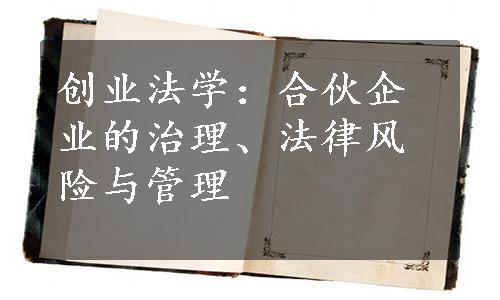 创业法学：合伙企
业的治理、法律风
险与管理